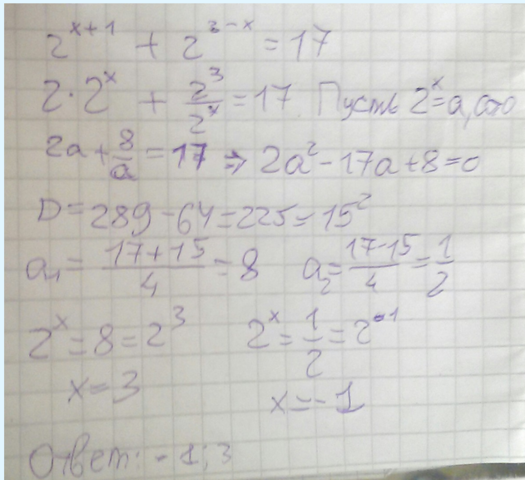 2^{x+1} + 2^{3-x} = 17
2 · 2^x + \frac{2^3}{2^x} = 17 Пусть 2^x = a, a>0
2a + \frac{8}{a} = 17 ⇒ 2a^2 - 17a + 8 = 0
D = 289 - 64 = 225 = 15^2
a_1 = \frac{17+15}{4} = 8 a_2 = \frac{17-15}{4} = \frac{1}{2}
2^x = 8 = 2^3 2^x = \frac{1}{2} = 2^{-1}
x = 3 x = -1
Ответ: -1; 3